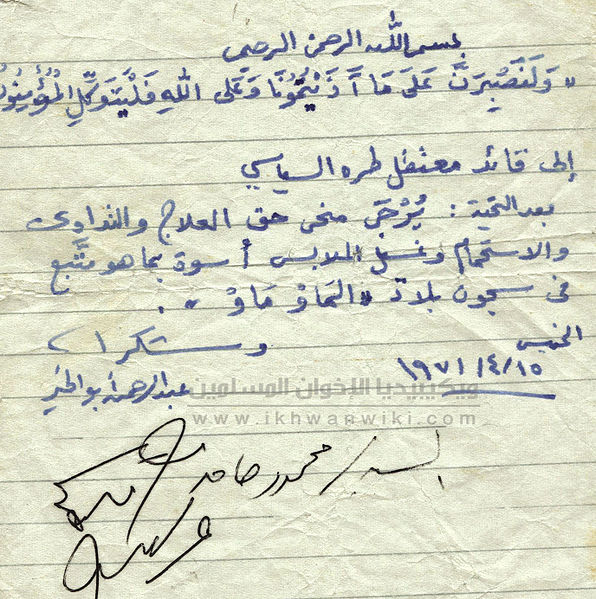 بسم الله الرحمن الرحيم
" وَلَنَصْبِرَنَّ عَلَى مَا آذَيْتُمُونَا وَعَلَى اللهِ فَلْيَتَوَكَّلِ الْمُؤْمِنُونَ
إلى قائد معتقل طره السياسي
بعد التحية : يُرْجَى منحى حق العلاج والتداوى
والاستحمام وغسل الملابس أسوة بما هو متَّبع
فى سجون بلاد " الماوْ مَاوْ " .
وشكرا
الخميس
١٩٧١/٤/١٥
عبد الرحمن أبو الخير
ويكيبيديا الإخوان المسلمين
www.ikhwanwiki.com
السيد / محمود حامد